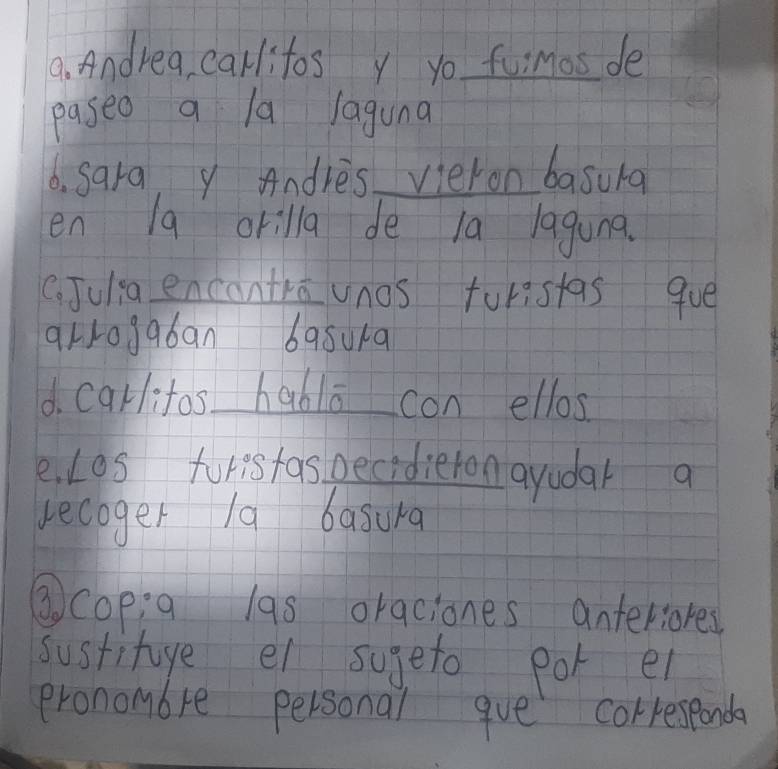 a. Andrea, carlitos y yo fuimos de
paseo a la laguna
b. sara y Andrés vieron basura
en la orilla de la laguna.
c. Julia encontró unos turistas que
arrojaban basura
d. carlitos habló con ellos.
e. Los turistas Decidieron ayudar a
recoger la basura
3. copia las oraciones anteriores
sustituye el sujeto por el
pronombre personal que corresponda